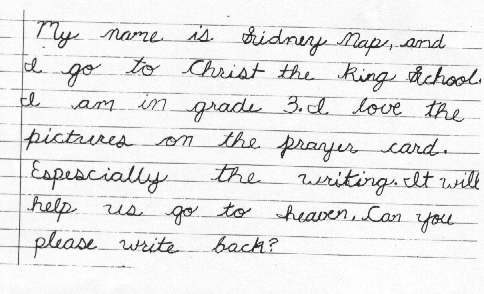 My name is Sidney Map, and
I go to Christ the King School.
I am in grade 3. I love the
pictures on the prayer card.
Espescially the writing. It will
help us go to heaven. Can you
please write back?